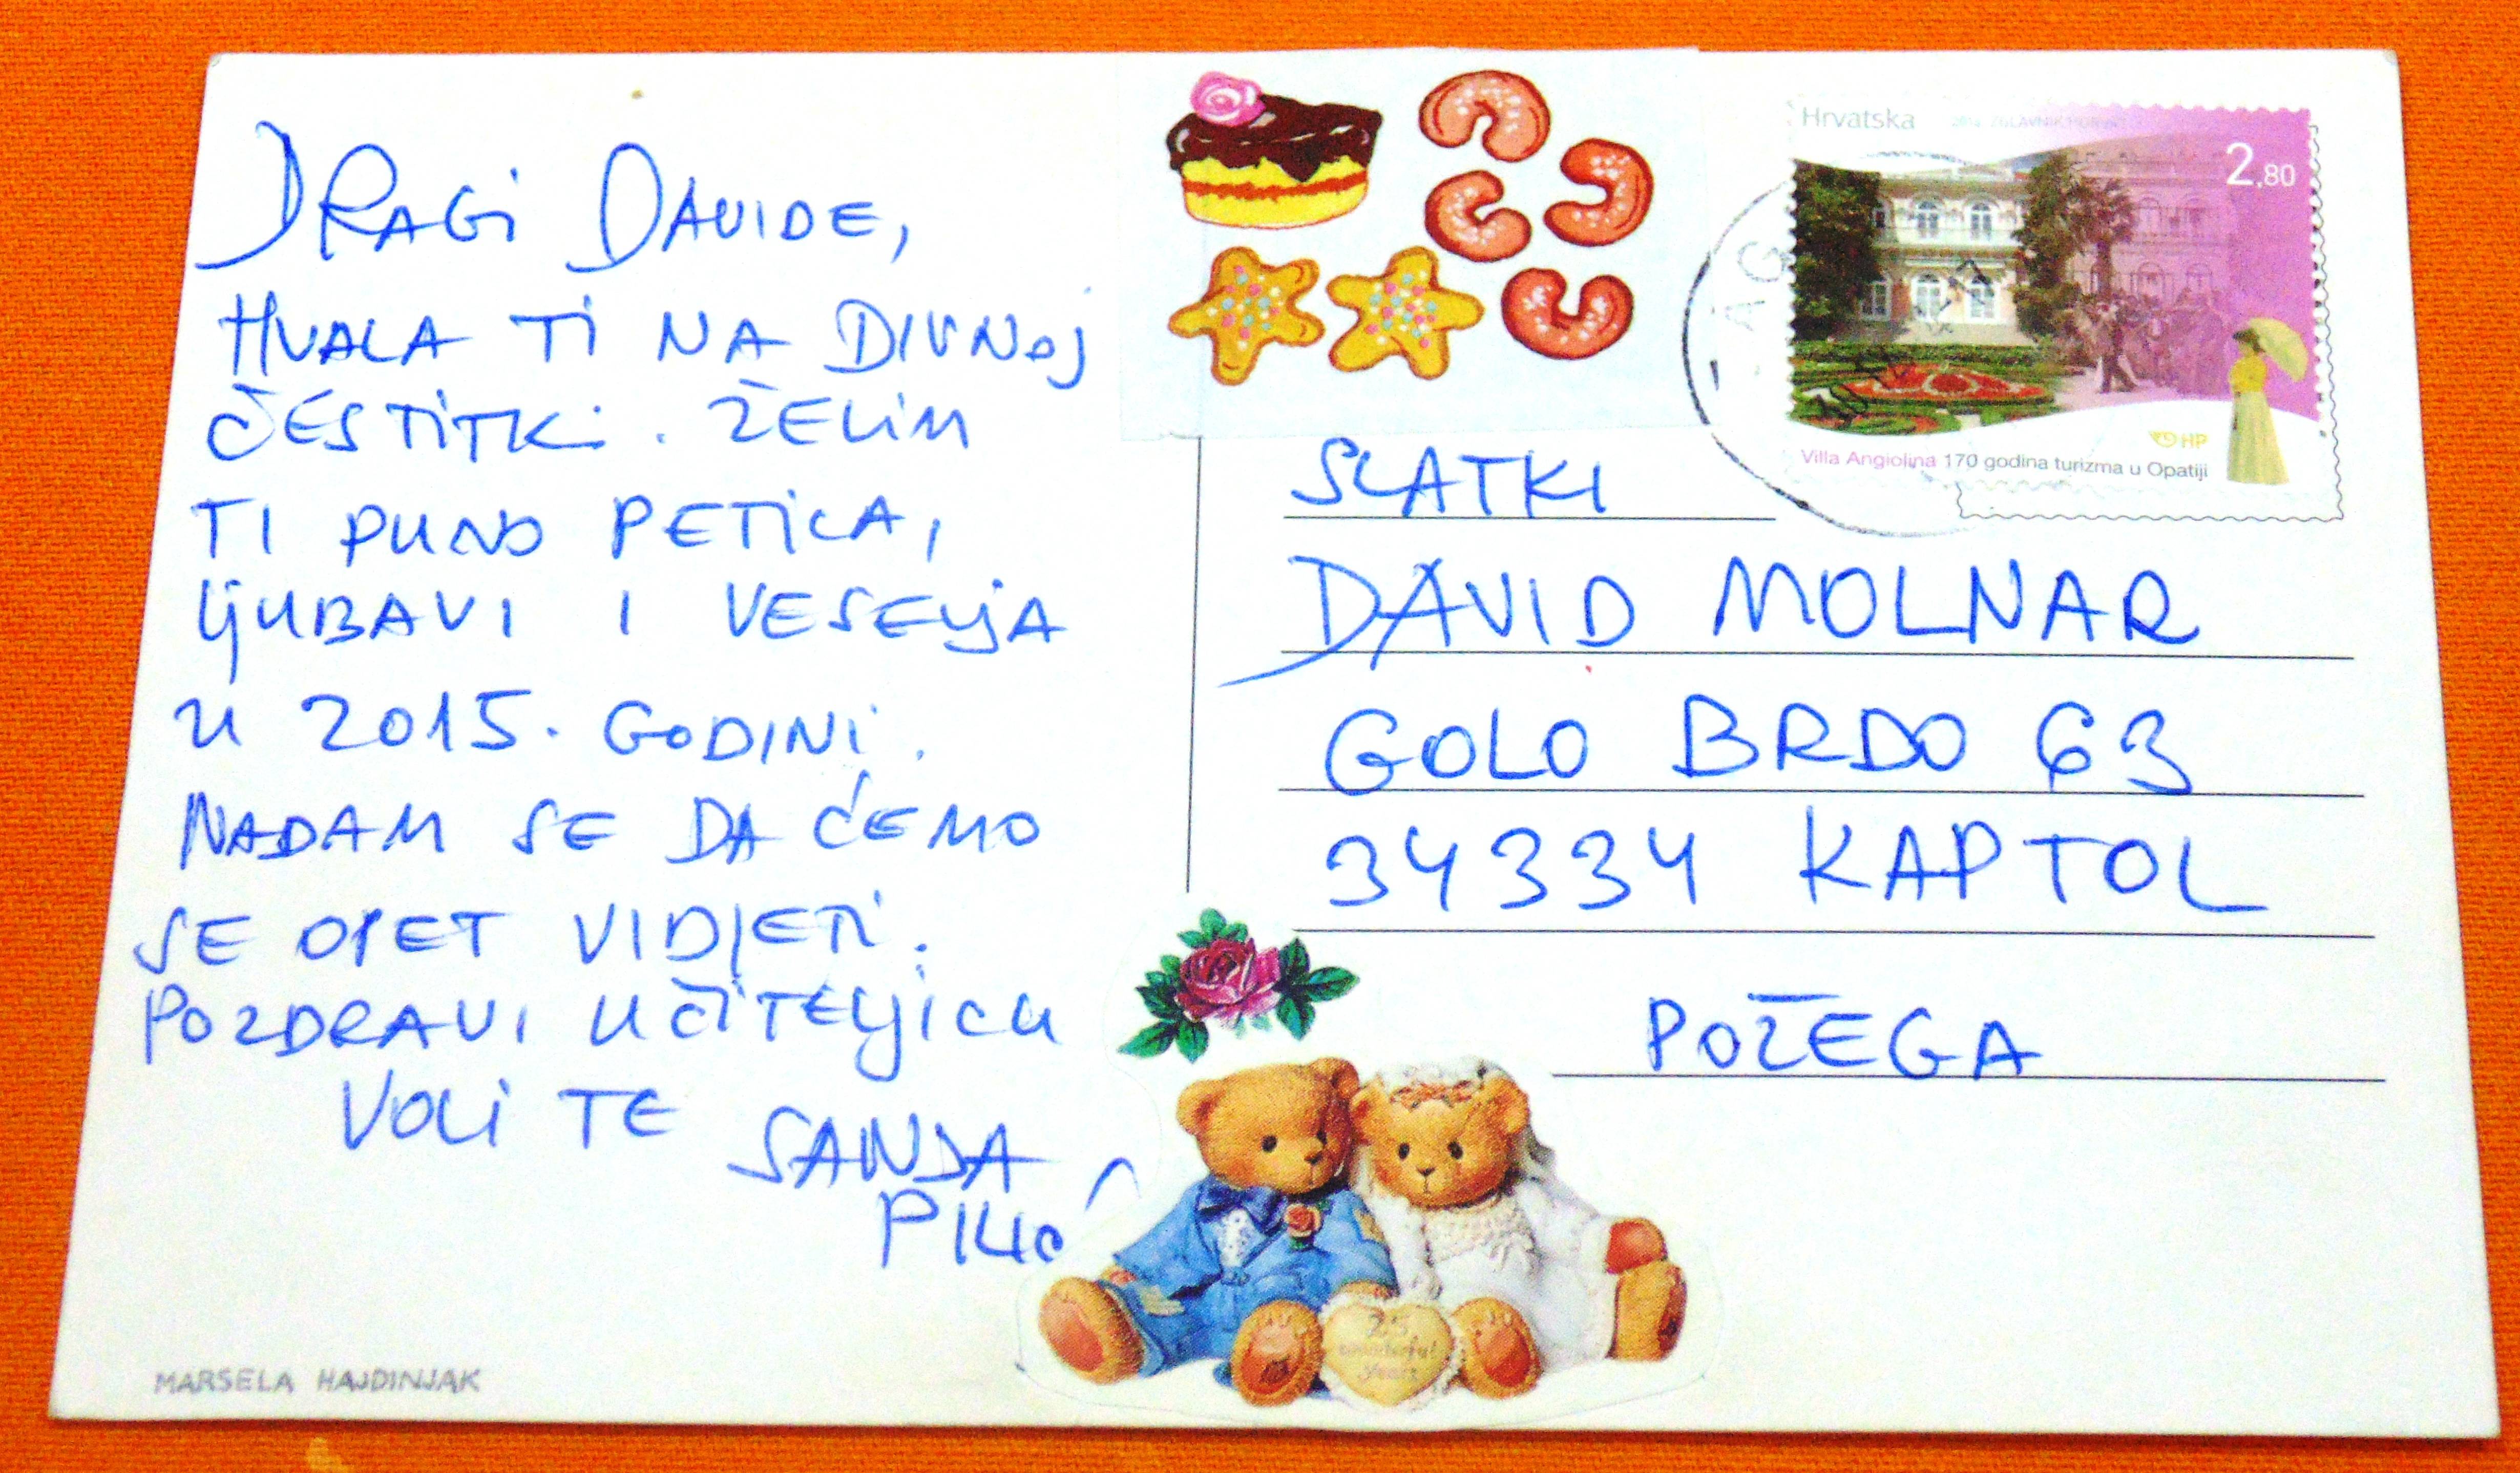 DRAGI DAVIDE,
HVALA TI NA DIVNOJ
ČESTITKI. ŽELIM
TI PUNO PETICA,
LJUBAVI I VESELJA
U 2015. GODINI.
NADAM SE DA ĆEMO
SE OPET VIDJETI.
POZDRAVI UČITELJICU
VOLI TE
SANDA
MARSELA HAJDINJAK
Hrvatska
2,80
HP
Villa Angiolina 170 godina turizma u Opatiji
SLATKI
DAVID MOLNAR
GOLO BRDO 63
34334 KAPTOL
POŽEGA
25
wonderful
years